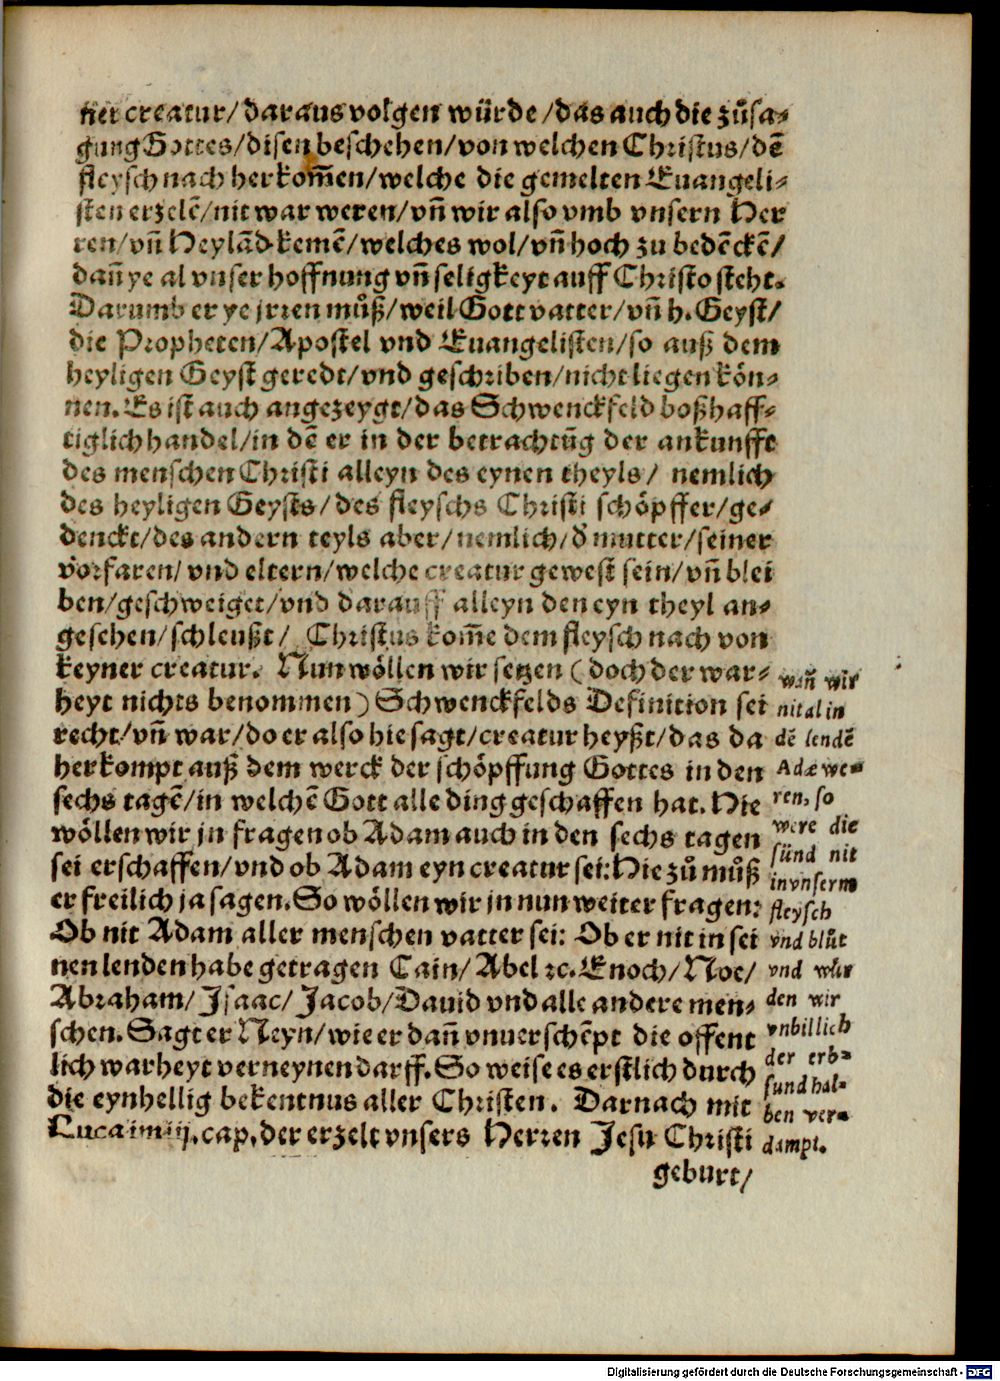 ner creatur/daraus volgen würde/das auch die zůsa-
gung Gottes/disen beschehen/von welchen Christus/dē
fleysch nach herkom̄en/welche die gemelten Euangeli-
sten erzelē/nit war weren/vn̄ wir also vmb vnsern Her
ren/vn̄ Heylād kemē/welches wol/vn̄ hoch zu bedēckē/
dan̄ ye al vnser hoffnung vn̄ seligkeyt auff Christo steht.
Darumb er ye jrren můß/weil Gott vatter/vn̄ h. Geyst/
die Propheten/Apostel vnd Euangelisten/so auß dem
heyligen Geyst geredt/vnd geschriben/nicht liegen kön-
nen. Es ist auch angezeygt/das Schwenckfeld boßhaff-
tiglich handel/in dē er in der betrachtūg der ankunfft
des menschen Christi alleyn des eynen theyls/ nemlich
des heyligen Geysts/des fleyschs Christi schöpffer/ge-
denckt/des andern teyls aber/nemlich/d̄ mutter/seiner
vorfaren/vnd eltern/welche creatur gewest sein/vn̄ blei
ben/geschweiget/vnd darauff alleyn den eyn theyl an-
gesehen/schleußt/ Christus kom̄e dem fleysch nach von
keyner creatur. Nun wöllen wir setzen (doch der war-
heyt nichts benommen) Schwenckfelds Definition sei
recht/vn̄ war/do er also hie sagt/creatur heyßt/das da
herkompt auß dem werck der schöpffung Gottes in den
sechs tagē/in welchē Gott alle ding geschaffen hat. Hie
wöllen wir jn fragen ob Adam auch in den sechs tagen
sei erschaffen/vnd ob Adam eyn creatur sei: Hie zů můß
er freilich ja sagen. So wöllen wir jn nun weiter fragen:
Ob nit Adam aller menschen vatter sei: Ob er nit in sei
nen lenden habe getragen Cain/Abel ꝛc. Enoch/Noe/
Abraham/Isaac/Jacob/Dauid vnd alle andere men-
schen. Sagt er Neyn/wie er dan̄ vnuerschēpt die offent
lich warheyt verneynen darff. So weise es erstlich durch
die eynhellig bekentnus aller Christen. Darnach mit
Luca im iij. cap. der erzelt vnsers Herren Jesu Christi
geburt/
wan̄ wir
nit al in
dē lendē
Adæ we-
ren, so
were die
sünd nit
in vnserm
fleysch
vnd blůt
vnd wür
den wir
vnbillich
der erb-
sund hal-
ben ver-
dampt.
Digitalisierung gefördert durch die Deutsche Forschungsgemeinschaft - DFG